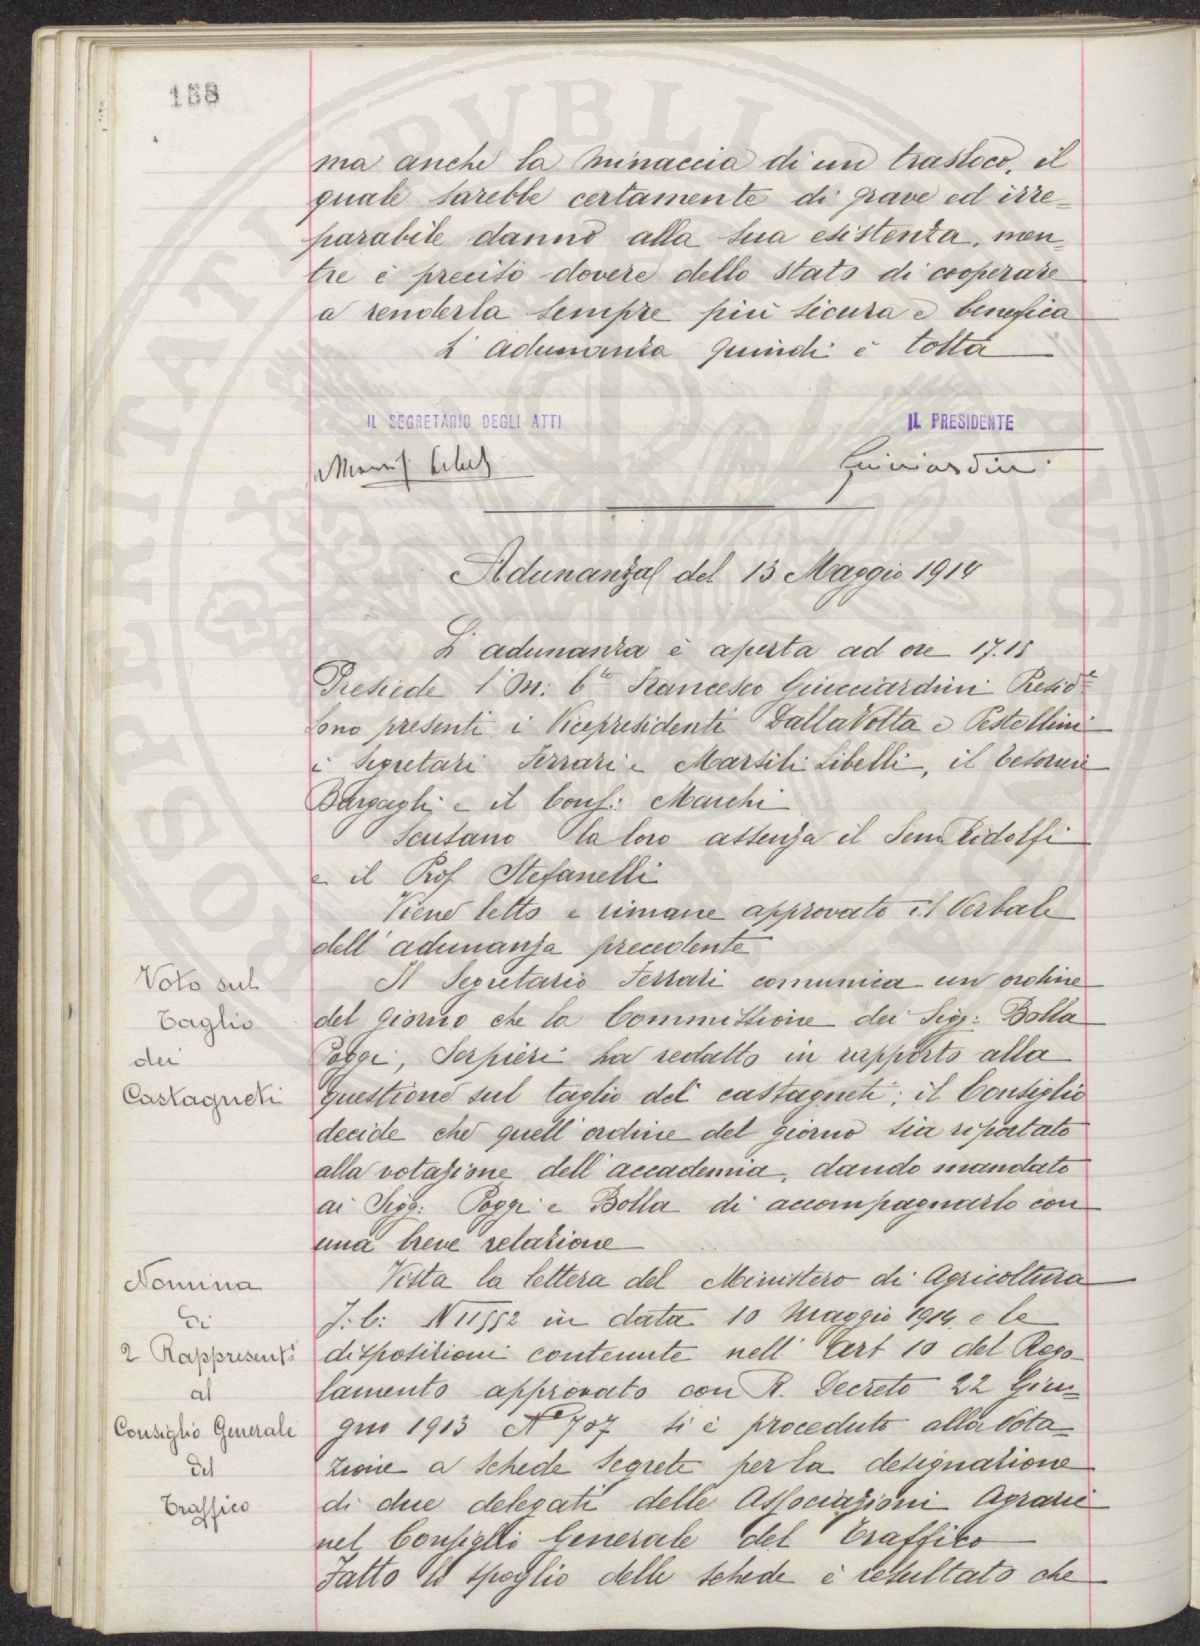 158
ma anche la minaccia di un trasloco, il
quale sarebbe certamente di grave ed irre=
parabile danno alla sua esistenza, men=
tre è preciso dovere dello stato di cooperare
a renderla sempre più sicura e benefica
L'adunanza quindi è tolta
IL SEGRETARIO DEGLI ATTI
IL PRESIDENTE
Guicciardini
Adunanza del 13 Maggio 1914
L'adunanza è aperta ad ore 17.15
Presiede l'On: Cte Francesco Guicciardini Presidte
Sono presenti i Vicepresidenti Dalla Volta e Pestellini
i Segretari Ferrari e Marsili Libelli, il Tesoriere
Bargagli e il Cons: Marchi
Scusano la loro assenza il Sen Ridolfi
e il Prof Stefanelli
Viene letto e rimane approvato il Verbale
dell'adunanza precedente
Voto sul
Taglio
dei
Castagneti
Il Segretario Ferrari comunica un ordine
del giorno che la Commissione dei Sigg: Bolla
Poggi, Serpieri ha redatto in rapporto alla
questione sul taglio dei castagneti; il Consiglio
decide che quell'ordine del giorno sia riportato
alla votazione dell'accademia, dando mandato
ai Sigg: Poggi e Bolla di accompagnarlo con
una breve relazione
Nomina
di
2 Rappresenti
al
Consiglio Generale
del
Traffico
Vista la lettera del Ministero di Agricoltura
I: C: N 11552 in data 10 Maggio 1914 e le
disposizioni contenute nell'art 10 del Rego=
lamento approvato con R. Decreto 22 Giu=
gno 1913 No 707 si è proceduto alla Vota=
zione a schede segrete per la designazione
di due delegati delle Associazioni Agrarie
nel Consiglio Generale del Traffico
Fatto lo spoglio delle schede è resultato che